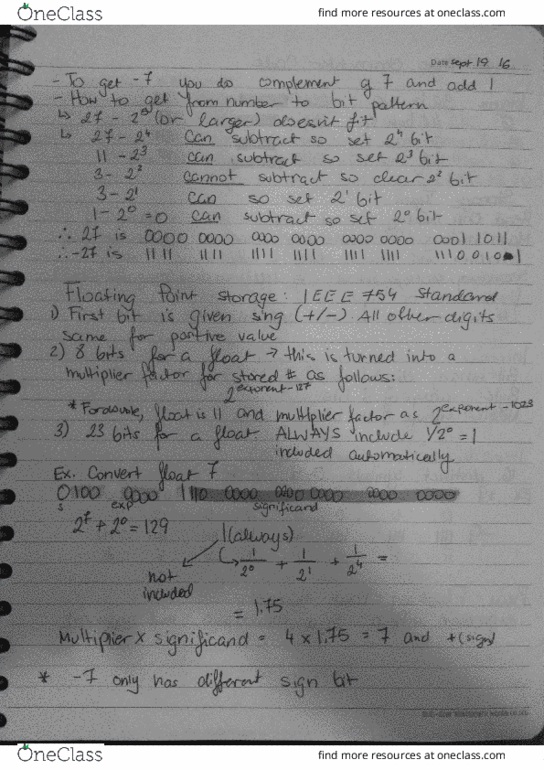 OneClass
find more resources at oneclass.com
Date Sept 19 16
- To get -7 you do complement of 7 and add 1
- How to get from number to bit pattern
↳ 27 - 2⁵ (or larger) doesn't fit
↳ 27 - 2⁴ can subtract so set 2⁴ bit
11 - 2³ can subtract so set 2³ bit
3 - 2² cannot subtract so clear 2² bit
3 - 2¹ can so set 2¹ bit
1 - 2⁰ = 0 can subtract so set 2⁰ bit
∴ 27 is 0000 0000 0000 0000 0000 0000 0001 1011
∴ -27 is 1111 1111 1111 1111 1111 1111 1110 0101
Floating Point Storage: IEEE 754 Standard
1) First bit is given sing (+/-) All other digits
same for positive value
2) 8 bits for a float → this is turned into a
multiplier factor for stored # as follows:
2^exponent-127
* For double, float is 11 and multiplier factor as 2^exponent-1023
3) 23 bits for a float. ALWAYS include 1/2⁰ = 1
included automatically
Ex. Convert float 7
0100 0000 1110 0000 0000 0000 0000 0000
s exp significand
2⁷ + 2⁰ = 129
1 (always)
↳ 1/2⁰ + 1/2¹ + 1/2⁴ =
not
included
= 1.75
Multiplier x significand = 4 x 1.75 = 7 and + (sign)
* -7 only has different sign bit
OneClass
find more resources at oneclass.com